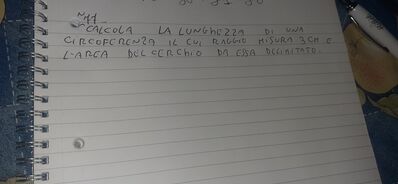 N°77
CALCOLA LA LUNGHEZZA DI UNA
CIRCOFERENZA IL CUI RAGGIO MISURA 3 CM E
L'AREA DEL CERCHIO DA ESSA DELIMITATO.